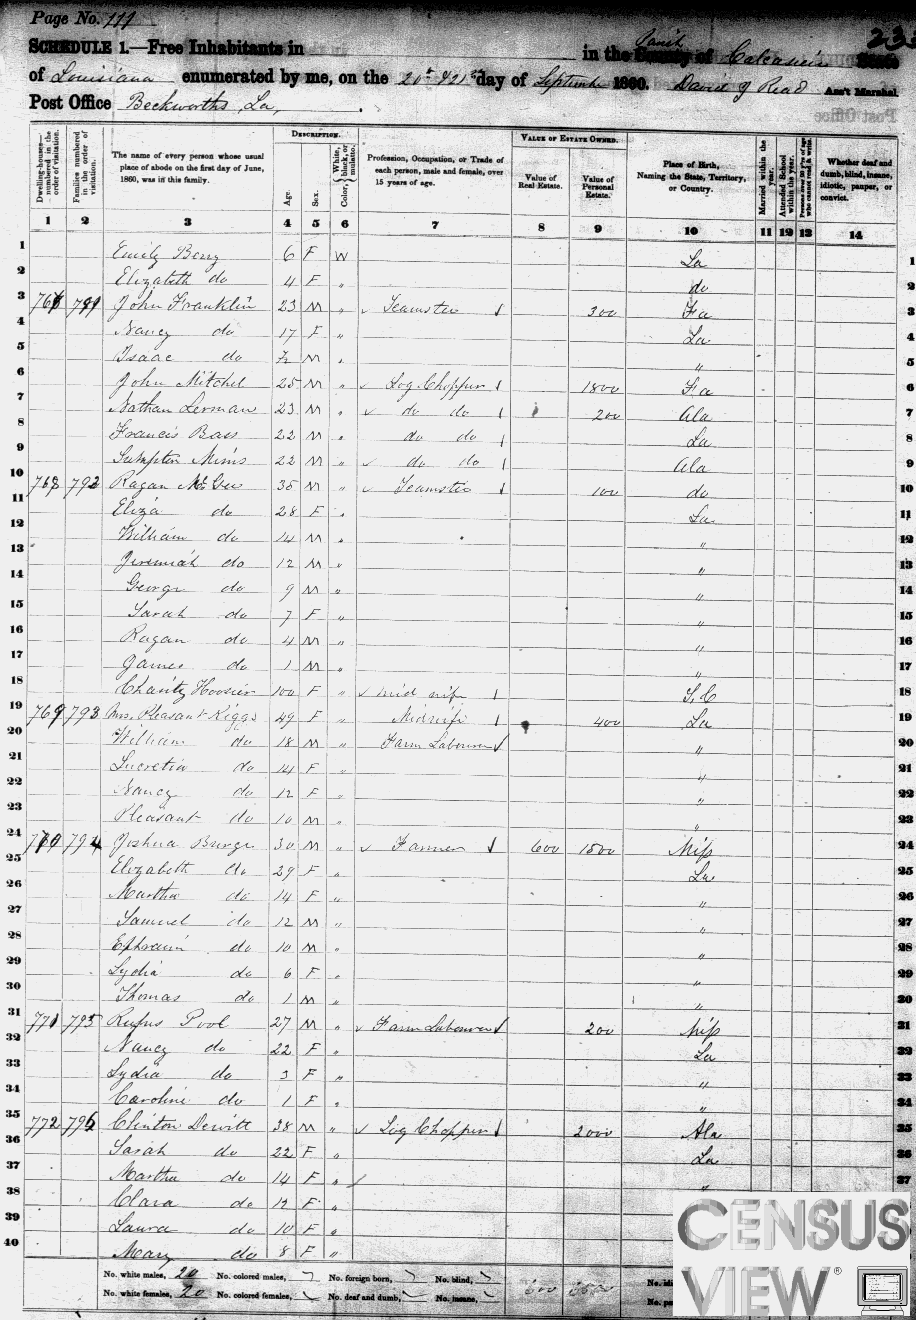 Page No. 111
SCHEDULE 1.—Free Inhabitants in in the Parish County of Calcasieu State
of Louisiana enumerated by me, on the 20th & 21st day of September 1860. David J Read Ass't Marshal.
Post Office Beckworths La,
Dwelling-houses—numbered in the order of visitation.
Families numbered in the order of visitation.
The name of every person whose usual place of abode on the first day of June, 1860, was in this family.
DESCRIPTION.
Age.
Sex.
Color, White, black, or mulatto.
Profession, Occupation, or Trade of each person, male and female, over 15 years of age.
VALUE OF ESTATE OWNED.
Value of Real Estate.
Value of Personal Estate.
Place of Birth, Naming the State, Territory, or Country.
Married within the year.
Attended School within the year.
Persons over 20 y'rs of age who cannot read & write.
Whether deaf and dumb, blind, insane, idiotic, pauper, or convict.
1 2 3 4 5 6 7 8 9 10 11 12 13 14
1 Emily Berry 6 F W La 1
2 Elizabeth do 4 F " do 2
3 791 John Franklin 23 M " Teamster 300 3
4 Nancy do 17 F " La 4
5 Isaac do M " " 5
6 John Mitchel 25 M " Log Chopper 1800 6
7 Nathan 23 M " do do 200 Ala 7
8 Francis Bass 22 M " do do La 8
9 Sumpter Mims 22 M " do do Ala 9
10 768 792 Ragan McGee 35 M " Teamster 100 do 10
11 Eliza do 28 F " La 11
12 William do 14 M " " 12
13 Jeremiah do 12 M " " 13
14 George do 9 M " " 14
15 Sarah do 7 F " " 15
16 Ragan do 4 M " " 16
17 James do 1 M " " 17
18 Charity Hoosier 100 F " mid wife S.C 18
19 769 793 Mrs. Pleasant Riggs 49 F " Midwife 400 La 19
20 William do 18 M " Farm Labourer " 20
21 Lucretia do 14 F " " 21
22 Nancy do 12 F " " 22
23 Pleasant do 10 M " " 23
24 794 Joshua Burge 30 M " Farmer 600 1500 Mip 24
25 Elizabeth do 29 F " La 25
26 Martha do 14 F " " 26
27 Samuel do 12 M " " 27
28 Ephraim do 10 M " " 28
29 Lydia do 6 F " " 29
30 Thomas do 1 M " " 30
31 771 795 Rufus Pool 27 M " Farm Labourer 200 Mip 31
32 Nancy do 22 F " La 32
33 Lydia do 3 F " " 33
34 Caroline do 1 F " " 34
35 772 796 Clinton Dewitt 38 M " Log Chopper 2000 Ala 35
36 Sarah do 22 F " La 36
37 Martha do 14 F " " 37
38 Clara do 12 F "
39 Laura do 10 F "
40 Mary do 8 F "
No. white males, 20 No. colored males, No. foreign born, No. blind,
No. white females, 20 No. colored females, No. deaf and dumb, No. insane, 600
CENSUS
VIEW®